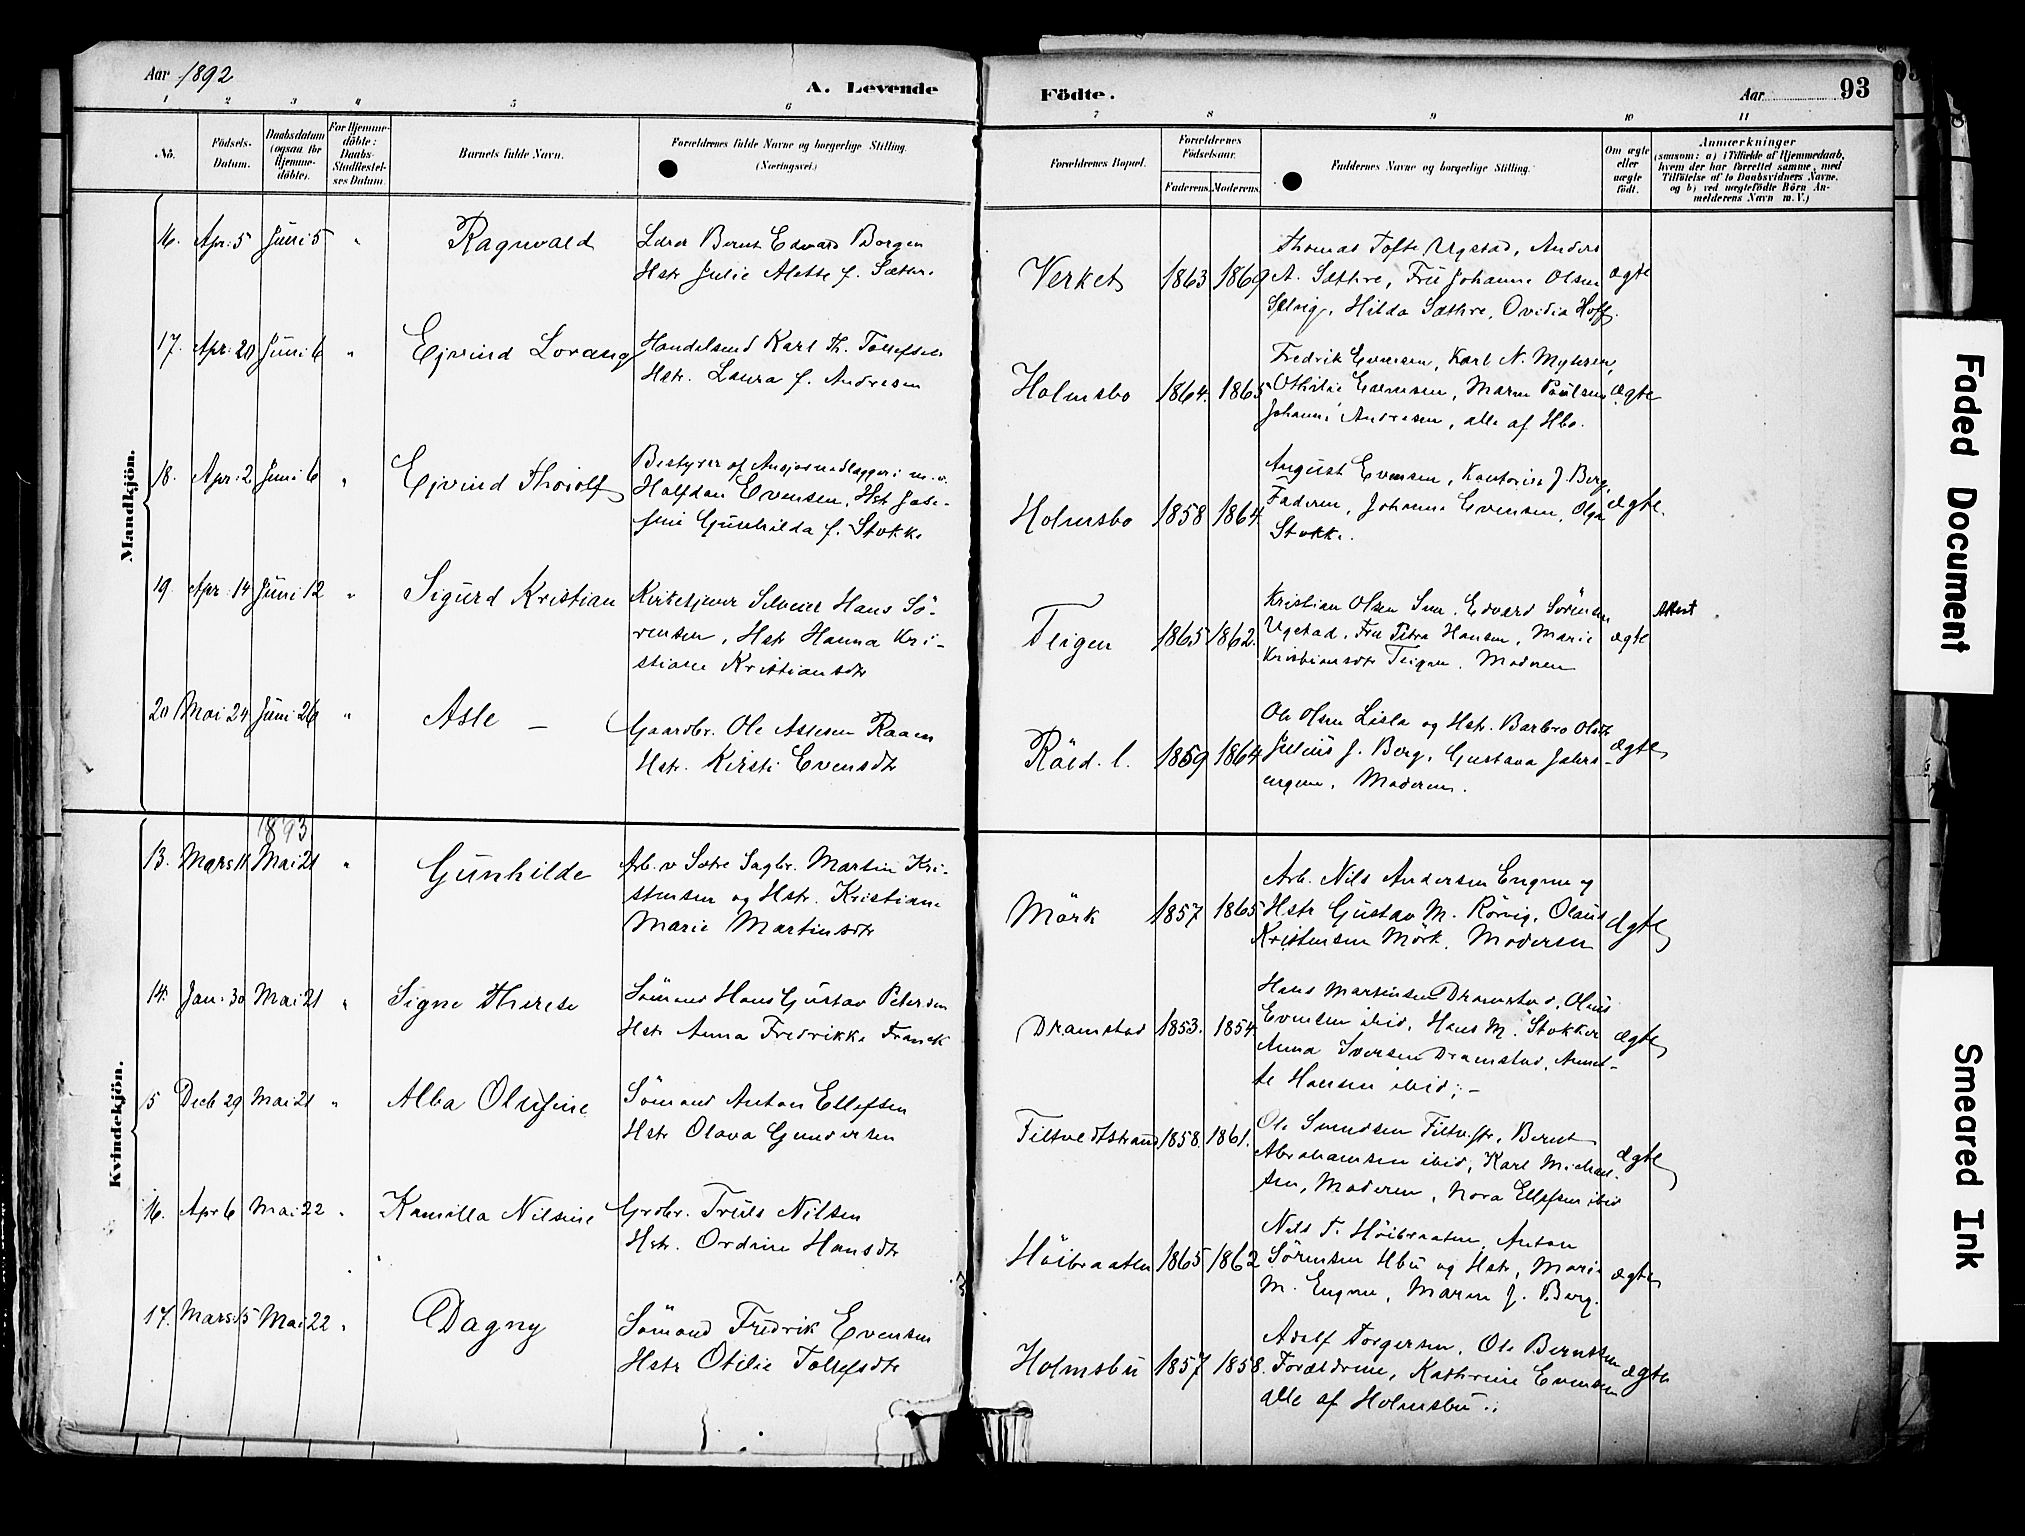 Aar 1892
A. Levende
Födte.
Aar 93
1 2 3 4 5 6 7 8 9 10 11
No.
Födsels-Datum.
Daabsdatum (ogsaa for Hjemme-döbte).
For Hjemme-döbte: Daabs-Stadfestel-ses Datum.
Barnets fulde Navn.
Forældrenes fulde Navne og borgerlige Stilling. (Næringsvei.)
Forældrenes Bopæl.
Forældrenes Födselsaar.
Faderens. Moderens.
Faddernes Navne og borgerlige Stilling.
Om ægte eller uægte födt.
Anmærkninger
(saasom: a) i Tilfælde af Hjemmedaab, hvem der har forrettet samme, med Tilföielse af to Daabsvidners Navne, og b) ved uægtefödte Börn An-melderens Navn m. V.)
Mandkjön.
16. Apr. 5 Juni 5 " Ragnvald
Lærer Bernt Edvard Borgen
Hstr Julie Alette f. Sæthre
Verket 1863 1869
Thomas Tofte Ugstad, Anders
A. Sæthre, Fru Johanne Olsen
Selvig, Hilda Sæthre, Ovidia Hoff.
ægte
17. Apr. 20 Juni 6 " Ejvind Lorang
Handelsmd Karl Th. Tollefsen
Hstr. Laura f. Andresen
Holmsbo 1864. 1865
Fredrik Evensen, Karl N. Myhren,
Othilie Evensen, Maren Paulsen
Johanne Andresen, alle af Hbo.
ægte
18. Apr. 2 Juni 6 " Ejvind Thorolf
Bestyrer af Ansjosnedlæggeri m. v.
Halfdan Evensen, Hst Jose-
fine Gunhilda f. Stokke
Holmsbo 1858 1864.
August Evensen, Kontorist J. Berg,
Faderen, Johanne Evensen, Olga
Stokke.
ægte.
19. Apr. 14 Juni 12 " Sigurd Kristian
Kirketjener Hans Sö-
rensen, Hstr Hanna Kri-
stiane Kristiansdtr
Teigen 1865 1862.
Kristian Olsen Edvard Sørensen
Ugstad, Fru Petra Hansen, Marie
Kristiansdtr Teigen, Moderen
ægte
Attest
20 Mai 24 Juni 26 " Asle —
Gaardbr. Ole Aslesen Raaen
Hstr. Kirsti Evensdtr
Röed. l. 1859 1864
Ole Olsen Lisla og Hstr. Barbro Olsdtr
Julius J. Berg, Gustava Jahrs-
engen, Moderen.
ægte
Kvindekjön.
1893
13. Mars 11 Mai 21 " Gunhilde
Arb. v Sætre Sagbr. Martin Kri-
stensen og Hstr. Kristiane
Marie Martinsdtr
Mörk 1857 1865
Arb. Nils Andersen Engene og
Hstr Gustav M. Rörvig, Olaus
Kristensen Mörk, Moderen
ægte
14. Jan. 30 Mai 21 " Signe Therese
Sömand Hans Gustav Petersen
Hstr Anna Fredrikke Franck
Dramstad 1853. 1854
Hans Martinsen Dramstad, Olaus
Evensen ibid, Hans M. Stokker
Anna Iversen Dramstad, Annet-
te Hansen ibid; —
ægte
15 Decb 29 Mai 21 " Alba Olufine
Sömand Anton Ellefsen
Hstr Olava Gundersen
Filtvedtstrand 1858. 1861.
Ole Svendsen Filtv.str, Bernt
Abrahamsen ibid, Karl Michael-
sen, Moderen, Nora Ellefsen ibid
ægte
16. Apr 6 Mai 22 " Kamilla Nilsine
Grdbr. Truls Nilsen
Hstr. Ordine Hansdtr
Höibraaten 1865 1862
Nils T. Höibraaten, Anton
Sørensen Hbu og Hstr, Marie
M. Engene, Maren J. Berg.
ægte
17. Mars 15 Mai 22 " Dagny
Sömand Fredrik Evensen
Hstr Otilie Tollefsdtr
Holmsbu 1857 1858.
Adolf Torgersen, Ole Berntsen
Forældrene, Kathrine Evensen
alle af Holmsbu.
ægte
Faded Document
Smeared Ink